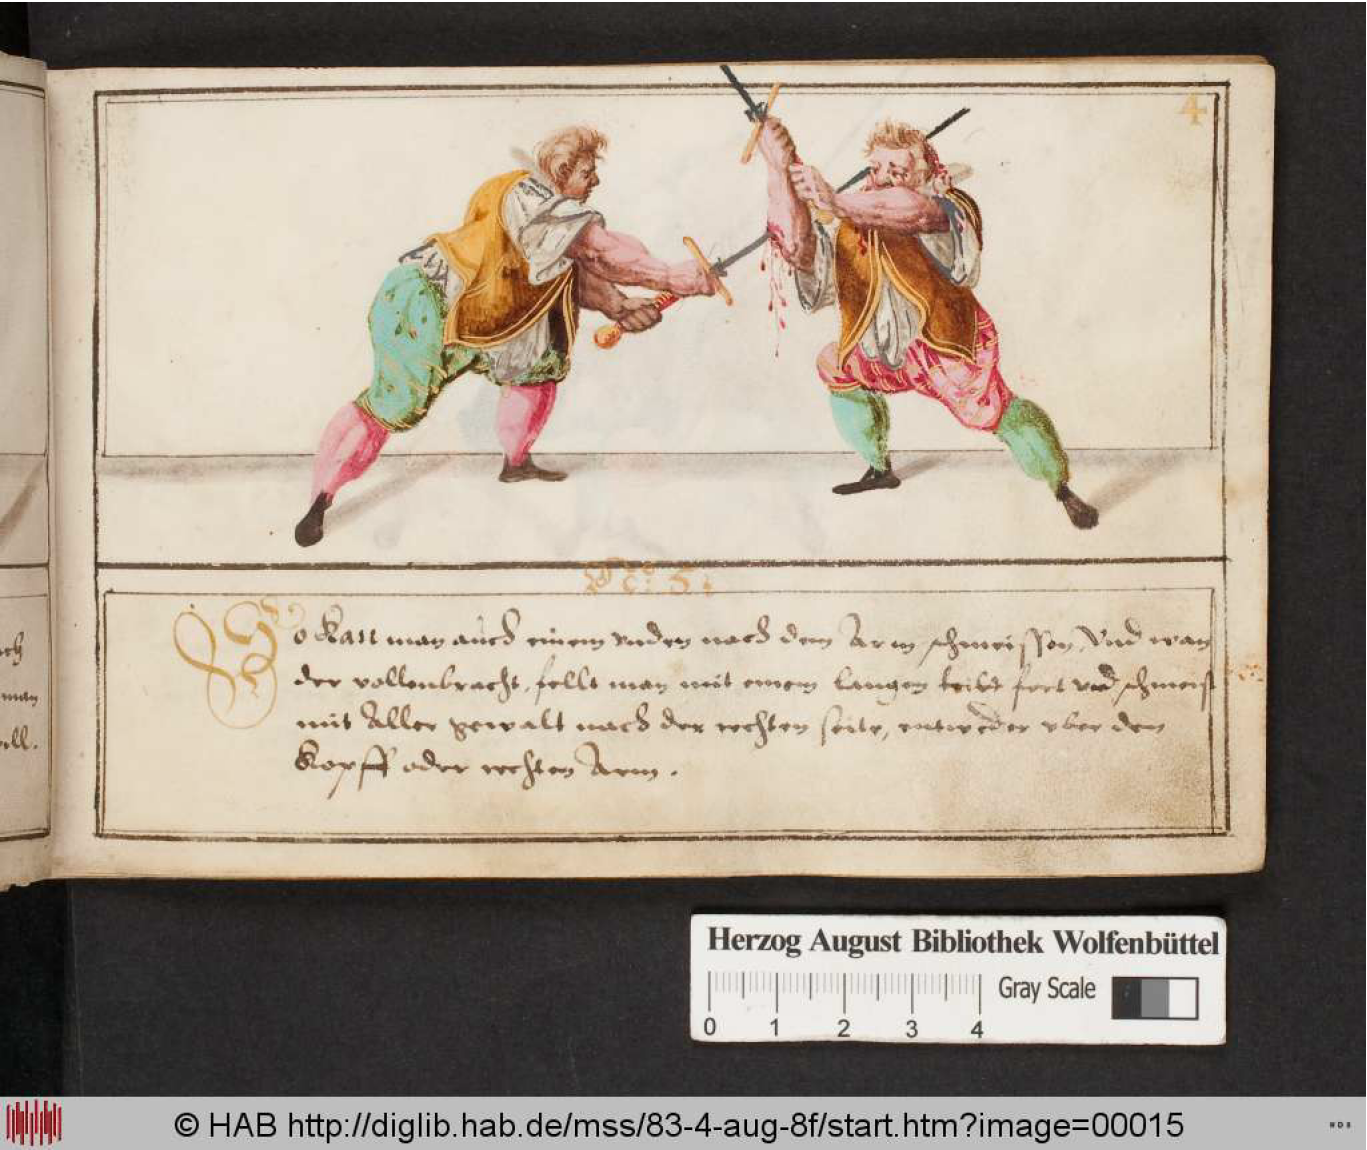 4
No: 5:
So Kan man auch einem vnden nach dem Arm schmeissen, Vnd wan
der vollenbracht, fellt man mit einem langen fort vnd schmeist
mit Aller gewalt nach der rechten seite, entweder vber den
Kopff oder rechten Arm.
man
Herzog August Bibliothek Wolfenbüttel
Gray Scale
0 1 2 3 4
© HAB http://diglib.hab.de/mss/83-4-aug-8f/start.htm?image=00015